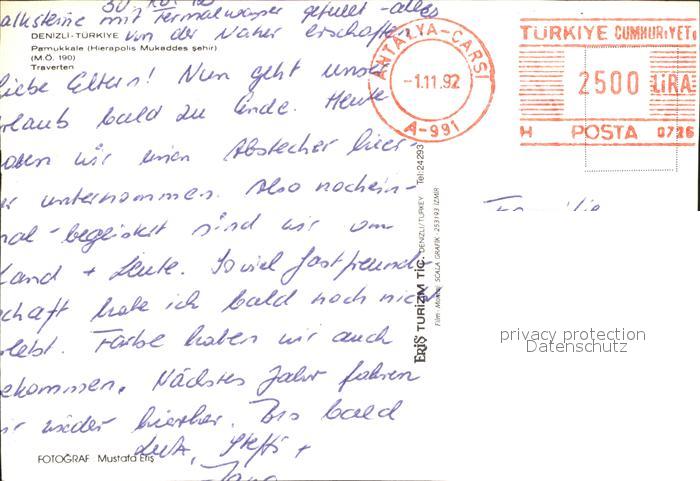 alksteine mit Termalwasser gefüllt - alles
von der Natur erschaffen
DENIZLI-TÜRKİYE
Pamukkale (Hierapolis Mukaddes şehir)
(M.Ö. 190)
Traverten
iebe Eltern! Nun geht unser
rlaub bald zu Ende. Heute
aben wir einen Abstecher hier-
r unternommen. Also nochein-
mal - begeistert sind wir von
Land + Leute. So viel Gastfreund-
chaft habe ich bald noch nie
rlebt. Farbe haben wir auch
ekommen. Nächstes Jahr fahren
ir wieder hierher. Bis bald
Steffi +
Jana
FOTOĞRAF: Mustafa Eriş
ANTALYA-ÇARŞI
-1.11.92
A-991
TÜRKİYE CUMHURİYETİ
2500 LİRA
H POSTA 0726
Eriş TURİZM TİC. DENİZLİ/TURKEY Tel:24293
SCALA GRAFİK - 253193 İZMİR
Familie
privacy protection
Datenschutz